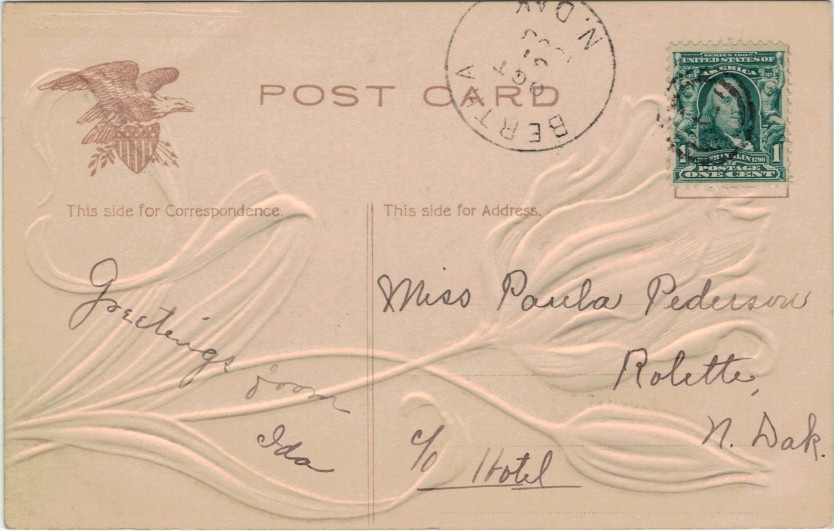 POST CARD
BERTHA
N. DAK.
OCT
SERIES 1902
UNITED STATES OF
AMERICA
FRANKLIN 1790
POSTAGE
1 ONE CENT 1
This side for Correspondence.
This side for Address.
Greetings from
Ida
Miss Paula Pederson
Rolette,
N. Dak.
c/o Hotel